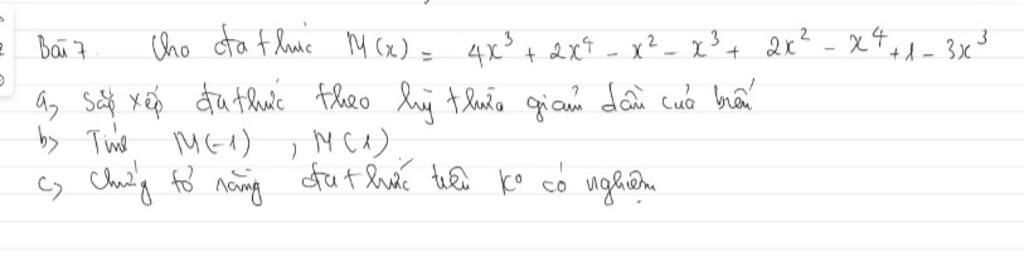 Bài 7 Cho đa thức M(x) = 4x³ + 2x⁴ - x² - x³ + 2x² - x⁴ + 1 - 3x³
a, Sắp xếp đa thức theo lũy thừa giảm dần của biến
b, Tính M(-1) , M(1)
c, Chứng tỏ rằng đa thức trên k° có nghiệm